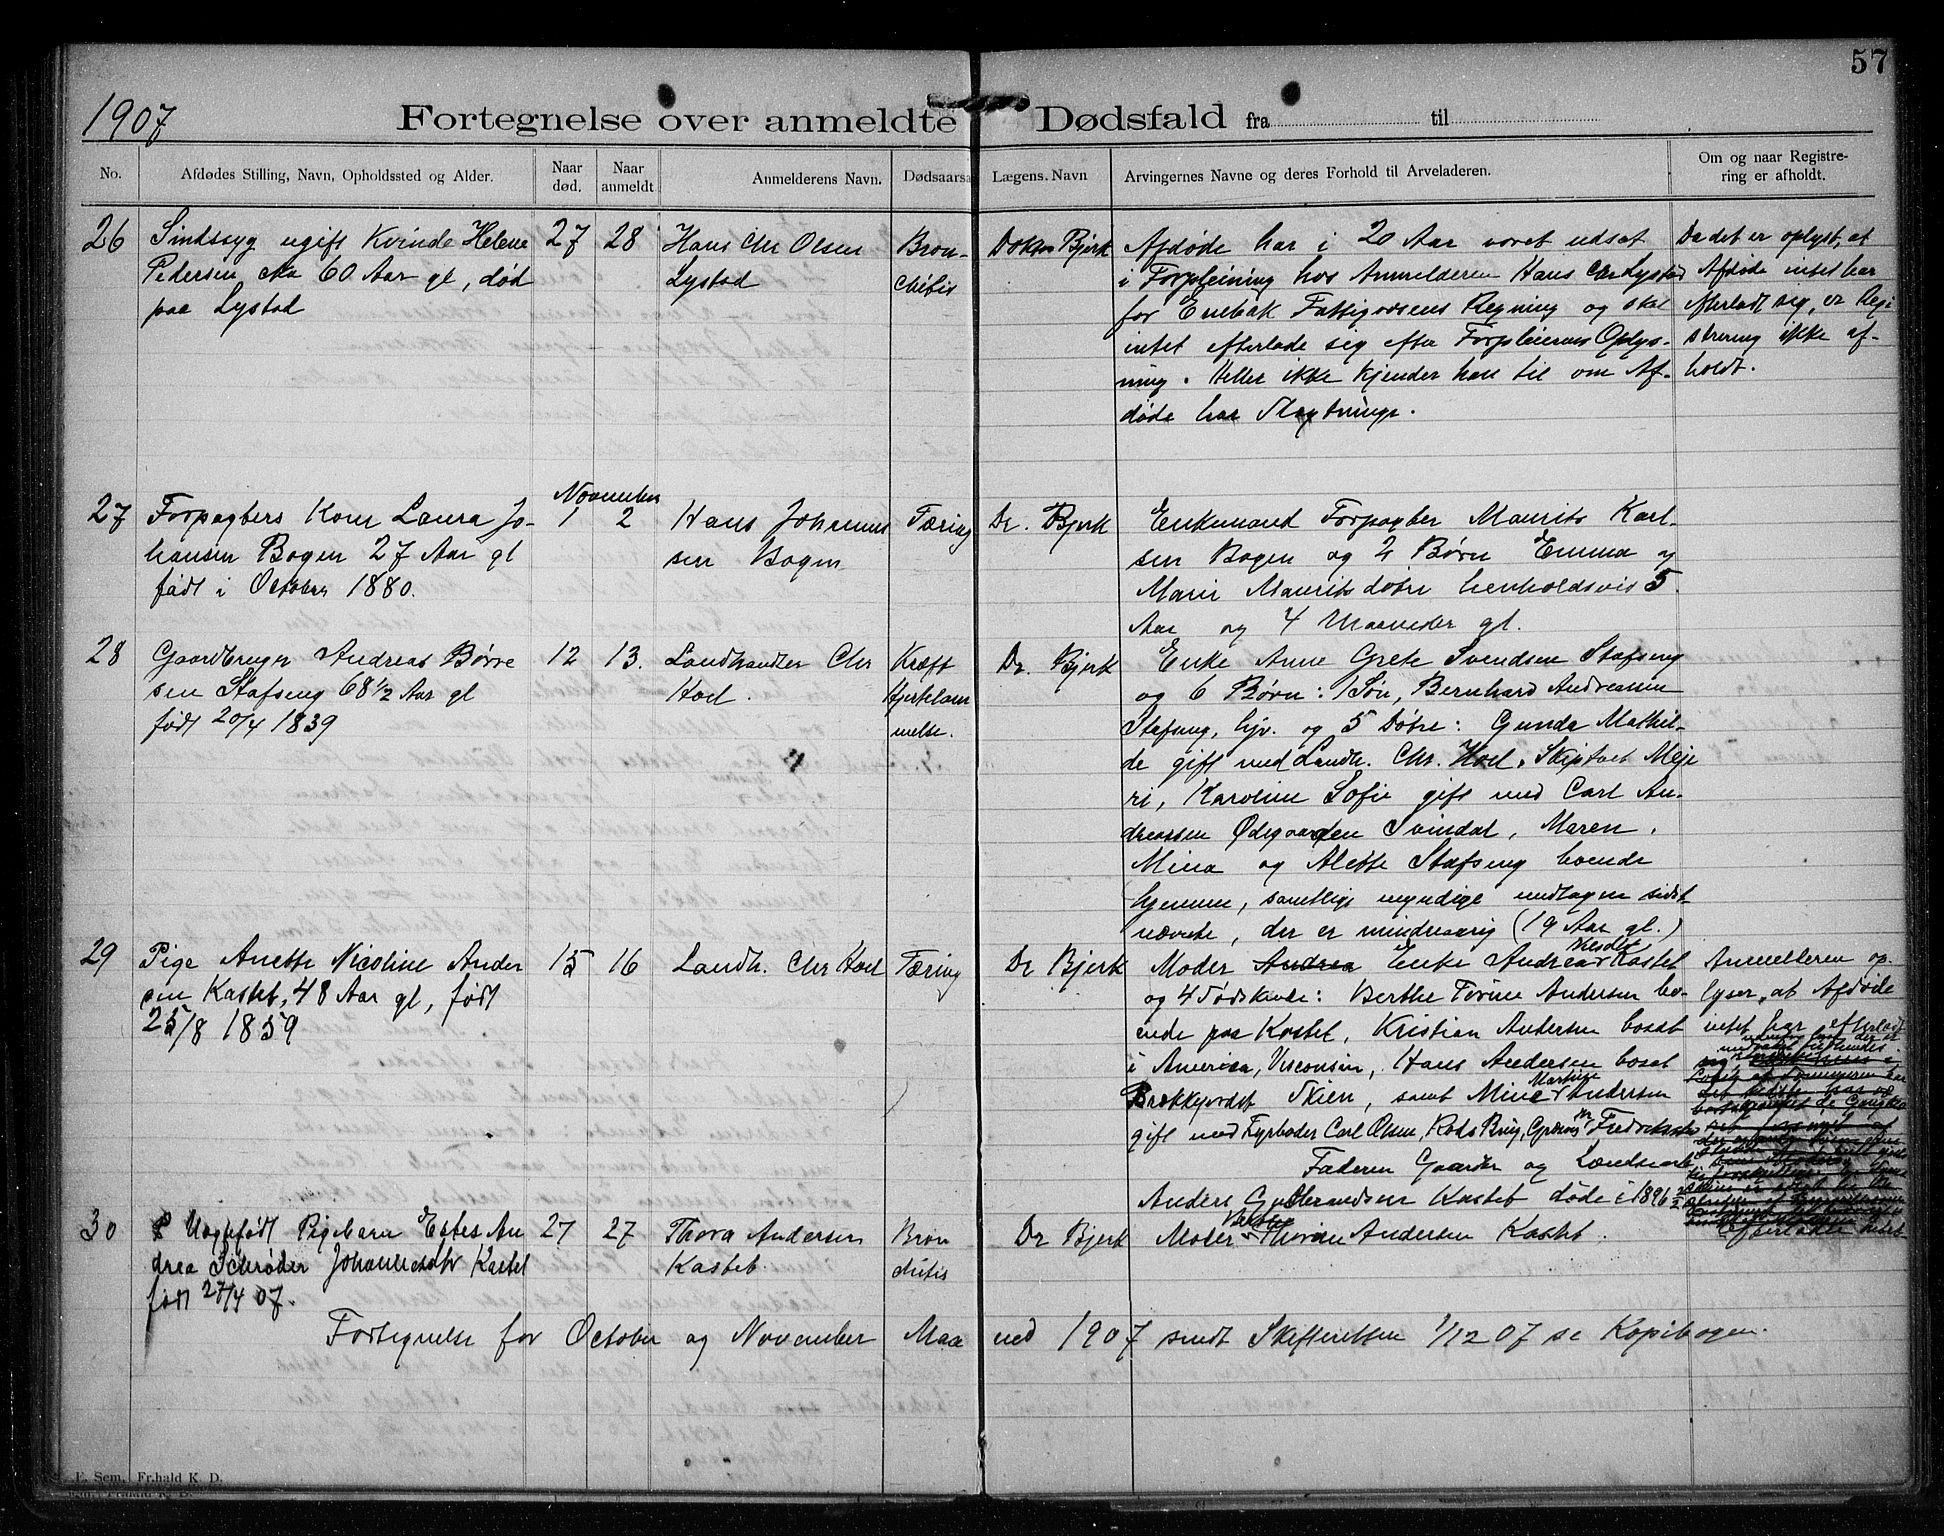 57
1907
Fortegnelse over anmeldte Dødsfald fra til
No.
Afdødes Stilling, Navn, Opholdssted og Alder.
Naar død.
Naar anmeldt
Anmelderens Navn.
Dødsaarsa
Lægens Navn
Arvingernes Navne og deres Forhold til Arveladeren.
Om og naar Registre-
ring er afholdt.
26
Sindssyg ugift Kvinde Helene
Pedersen cka 60 Aar gl, død
paa Lystad
27
28
Hans Chr Olsen
Lystad
Bron-
chitis
Doktor Bjerk
Afdøde har i 20 Aar været udsat
i Forpleining hos Anmelderen Hans Chr Lystad
for Enebak Fattigvæsens Regning og skal
intet efterlade sig efter Forpleierens Oplys-
ning. Heller ikke kjender han til om Af-
døde har Slægtninge.
Da det er oplyst, at
Afdøde intet har
efterladt sig, er Regi
strering ikke af-
holdt.
November
27
Forpagters Kone Laura Jo-
hansen Bogen 27 Aar gl
født i October 1880.
1
2
Hans Johannes
sen Bogen
Tæring
Dr. Bjerk
Enkemand Forpagter Maurits Karl-
sen Bogen og 2 Børn Emma og
Marie Mauritsdøtre henholdsvis 5
Aar og 4 Maaneder gl.
28
Gaardbruger Andreas Børre
sen Stafseng 68 1/2 Aar gl
født 20/4 1839
12
13.
Landhandler Chr
Hoel.
Kræft
Hjertelam
melse.
Dr. Bjerk
Enke Anne Grete Svendsen Stafseng
og 6 Børn: 1 Søn, Bernhard Andreassen
Stafseng, hjv. og 5 Døtre: Gunda Mathil-
de gift med Landh. Chr. Hoel, Skiptvet Meje
ri, Karoline Sofie gift med Carl An-
dreassen Ødegaarden Svindal, Maren,
Mina og Alette Stafseng boende
hjemme, samtlige myndige undtagen sidst
nævnte, der er mindreaarig (19 Aar gl.)
29
Pige Anette Nicoline Ander
sen Kastet, 48 Aar gl, født
25/8 1859
15
16
Landh. Chr Hoel
Tæring
Dr Bjerk
Moder Andrea Enke Andrea Kastet
og 4 Sødskende: Berthe Torine Andersen bo-
ende paa Kastet, Kristian Andersen bosat
i America, Visconsin, Hans Andersen bosat
Brekkejordet Skien, samt Mine Martine Andersen
gift med Fyrbøder Carl Olsen, Rods Brug, Fredriksstad
Faderen Gaardbr og Landsmand
Anders Gulbrandsen Kastet døde i 1896
Anmelderen op-
lyser, at Afdøde
intet har efterladt
Efterlader intet
30
Uægtefødt Pigebarn Estes An
drea Schrøder Johannesdtr Kastet
født 27/4 07.
27
27
Thora Andersen
Kastet.
Bron
chitis
Dr Bjerk
Moder Berthe Thorine Andersen Kastet.
Fortegnelse for October og November Maa ned 1907 sendt Skifteretten 1/12 07 se Kopibogen.
E. Sem, Fr.hald K. D.